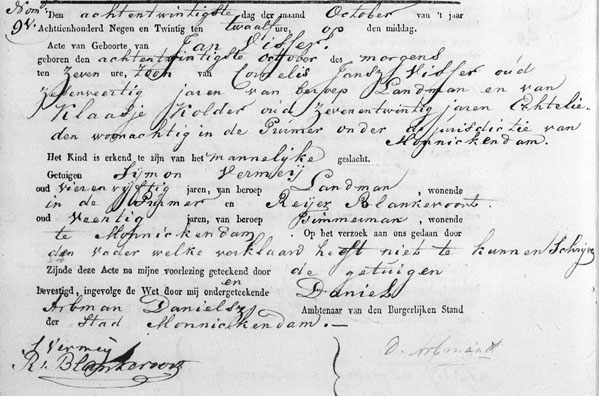 Nom:
92. Den achtentwintigste dag der maand October van 't jaar
Achttienhonderd Negen en Twintig ten twaalf ure, op den middag.
Acte van Geboorte van Jan Visser.
geboren den achtentwintigste October des morgens
ten Zeven ure, Zoon van Cornelis Jansz Visser oud
Zevenveertig jaren van beroep Landman en van
Klaasje Kolder oud Zevenentwintig jaren Echtelie-
den woonachtig in de Purmer onder de jurisdictie van
Monnickendam.
Het Kind is erkend te zijn van het mannelijke geslacht.
Getuigen Sijmon Vermeij
oud vierenvijftig jaren, van beroep Landman, wonende
in de Purmer en Reijer Blankevoort
oud veertig jaren, van beroep Timmerman, wonende
te Monnickendam. Op het verzoek aan ons gedaan door
den vader welke verklaard heeft niet te kunnen Schrijven
Zijnde deze Acte na mijne voorlezing geteekend door de getuigen
en
Bevestigd, ingevolge de Wet door mij ondergeteekende Daniel
Arbman Danielsz Ambtenaar van den Burgerlijken Stand
der Stad Monnickendam.
S Vermeij
R. Blankevoort
D. Arbman